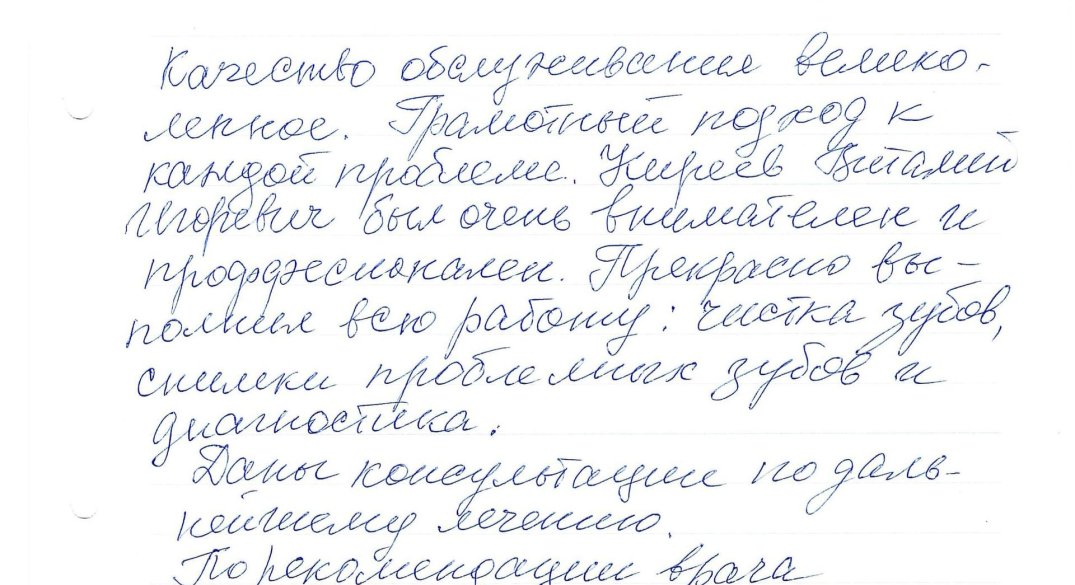 Качество обслуживания велико-
лепное. Грамотный подход к
каждой проблеме. Киреев Виталий
Игоревич был очень внимателен и
профессионален. Прекрасно вы-
полнил всю работу: чистка зубов,
снимки проблемных зубов и
диагностика.
Даны консультации по даль-
нейшему лечению.
По рекомендации врача